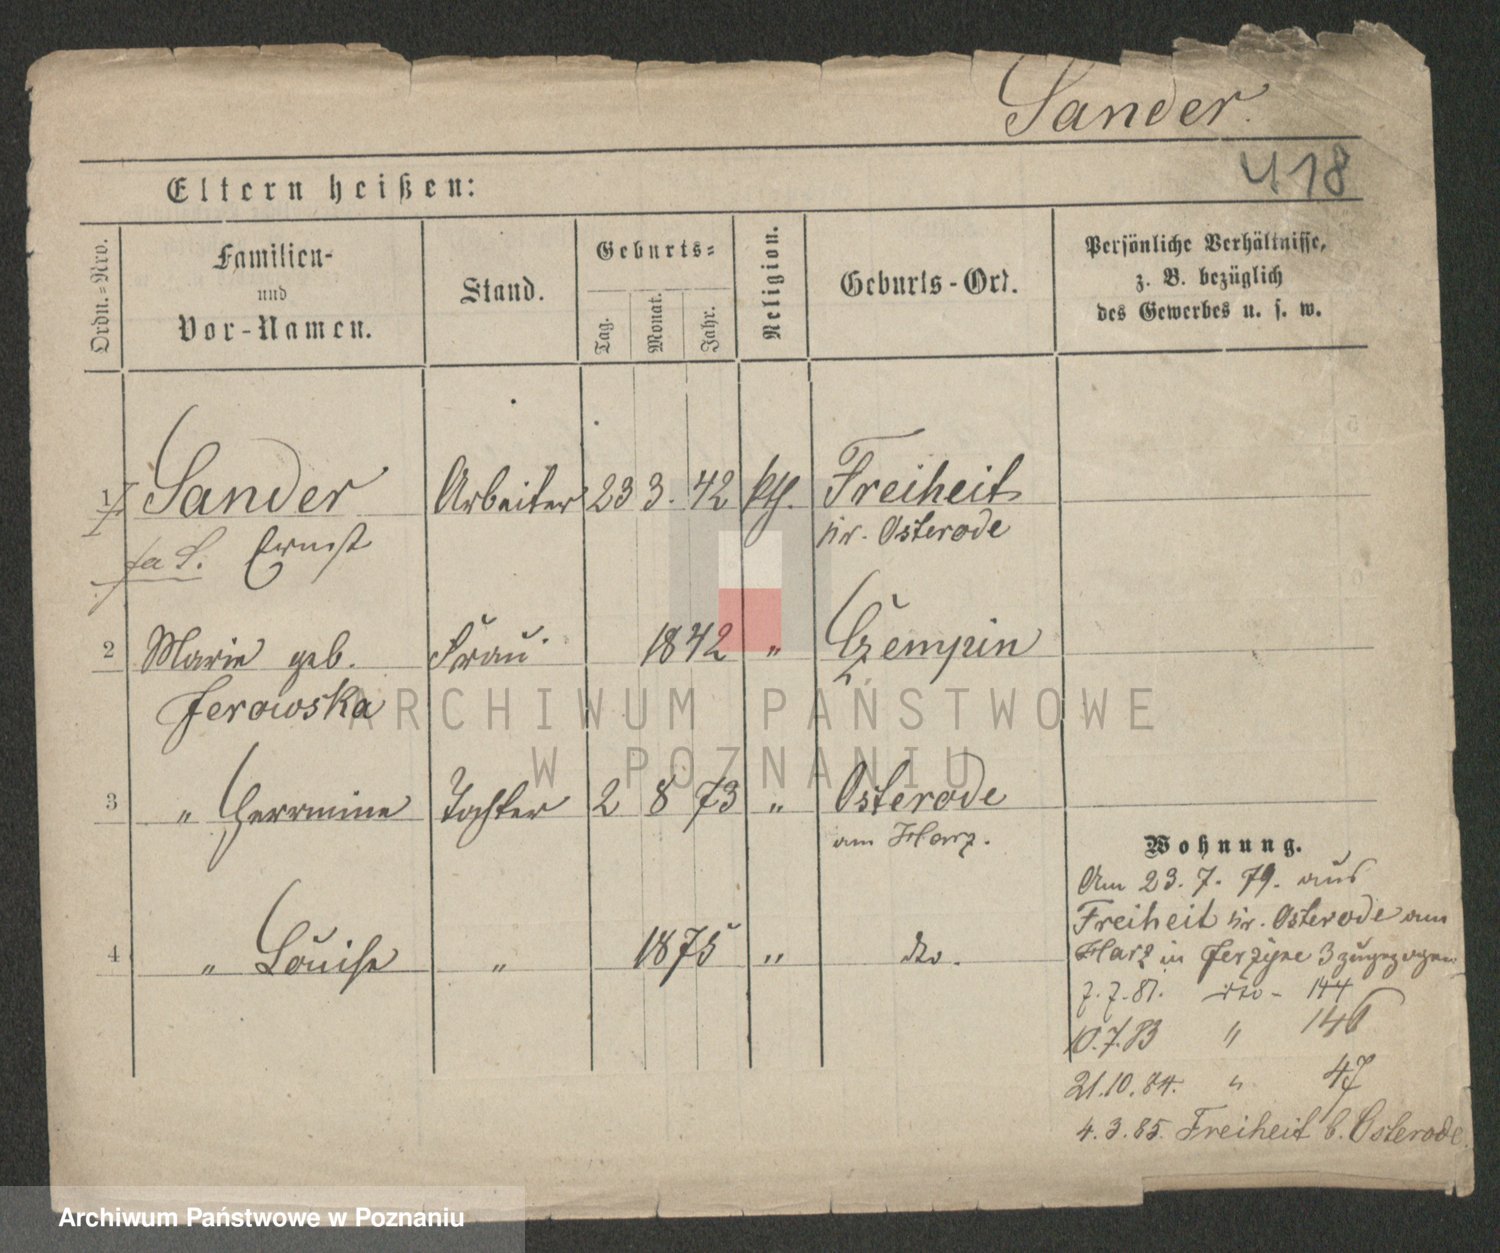 Sander.
418
Eltern heißen:
Ordn.-Nro.
Familien-
und
Vor-Namen.
Stand.
Geburts=
Tag.
Monat.
Jahr.
Religion.
Geburts-Ort.
Persönliche Verhältnisse,
z. B. bezüglich
des Gewerbes u. s. w.
1 Sander Arbeiter 23 3. 42 kth. Freiheit
Ernst Kr. Osterode
2 Marie geb. Frau 1842 " Czempin
Jerowska
3 " Herrmine Tochter 2 8 73 " Osterode
am Harz.
4 " Louise " 1875 " dto.
Wohnung.
Am 23. 7. 79. aus
Freiheit Kr. Osterode am
Harz in Jerzyce 3 zugezogen
7.7.81. dto - 144
10.7.83 " 146
21.10.84. " 47
4.3.85. Freiheit b. Osterode
ARCHIWUM PAŃSTWOWE
W POZNANIU
Archiwum Państwowe w Poznaniu